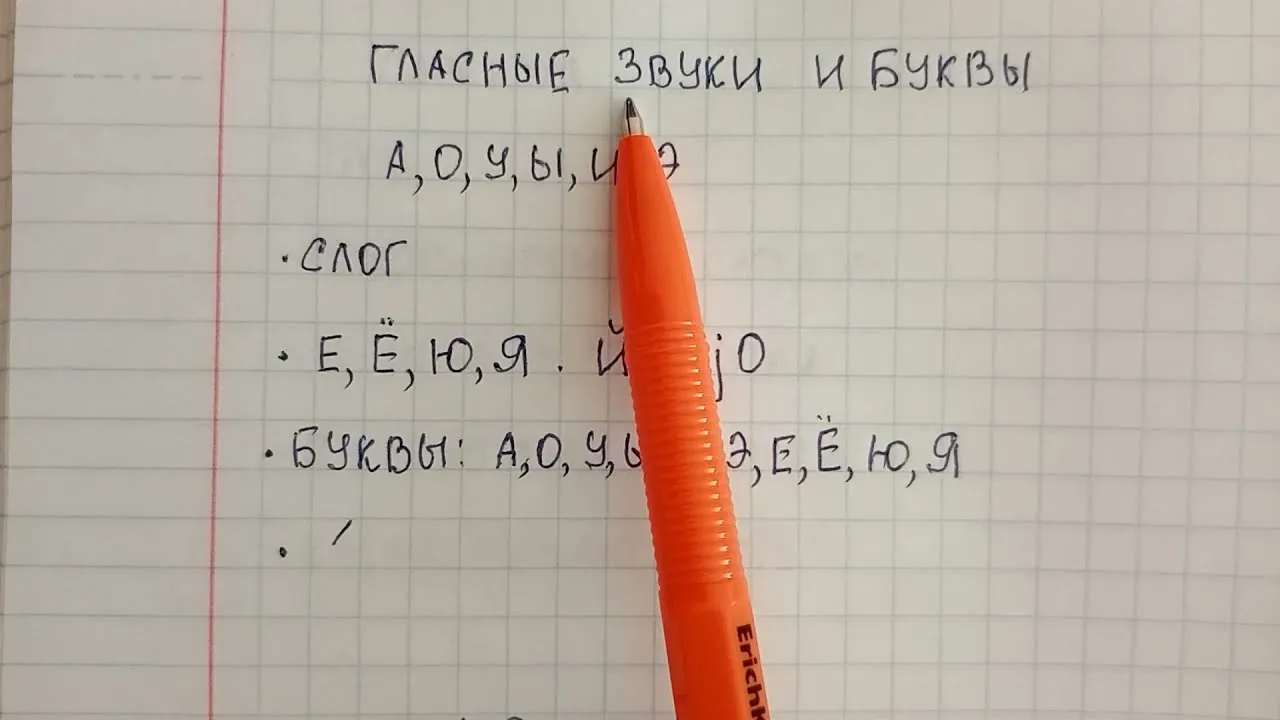 ГЛАСНЫЕ ЗВУКИ И БУКВЫ
А, О, У, Ы, И Э
· СЛОГ
· Е, Ё, Ю, Я . Й jО
· БУКВЫ: А, О, У, Ы Э, Е, Ё, Ю, Я
· ´
Erich